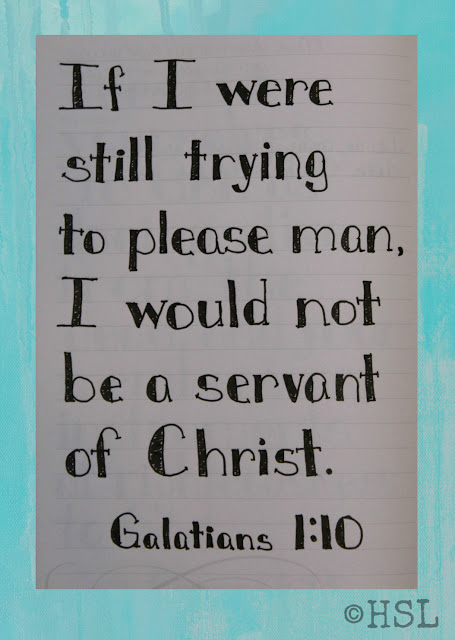 If I were
still trying
to please man,
I would not
be a servant
of Christ.
Galatians 1:10
©HSL